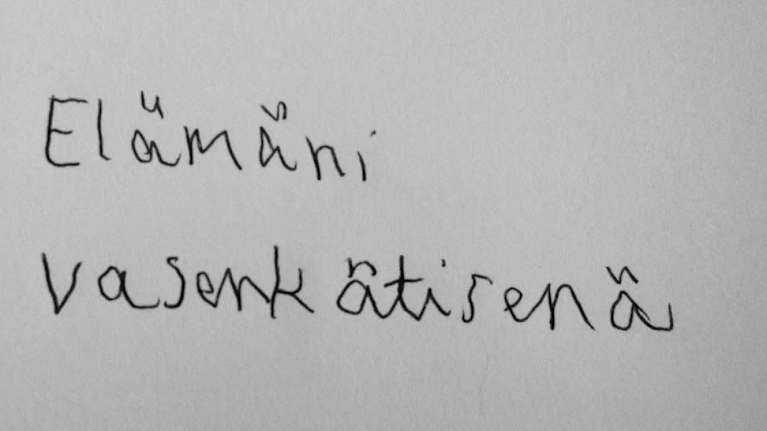 Elämäni
vasenkätisenä